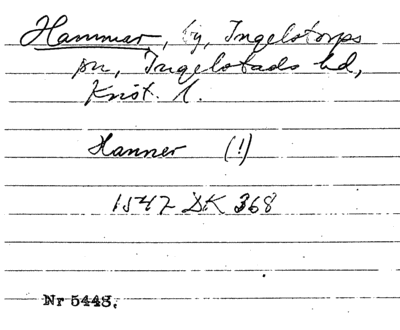 Hammar, by, Ingelstorps
sn, Ingelstads hd,
Krist. l.
Hanner (!)
1547 DK 368
Nr 5443.